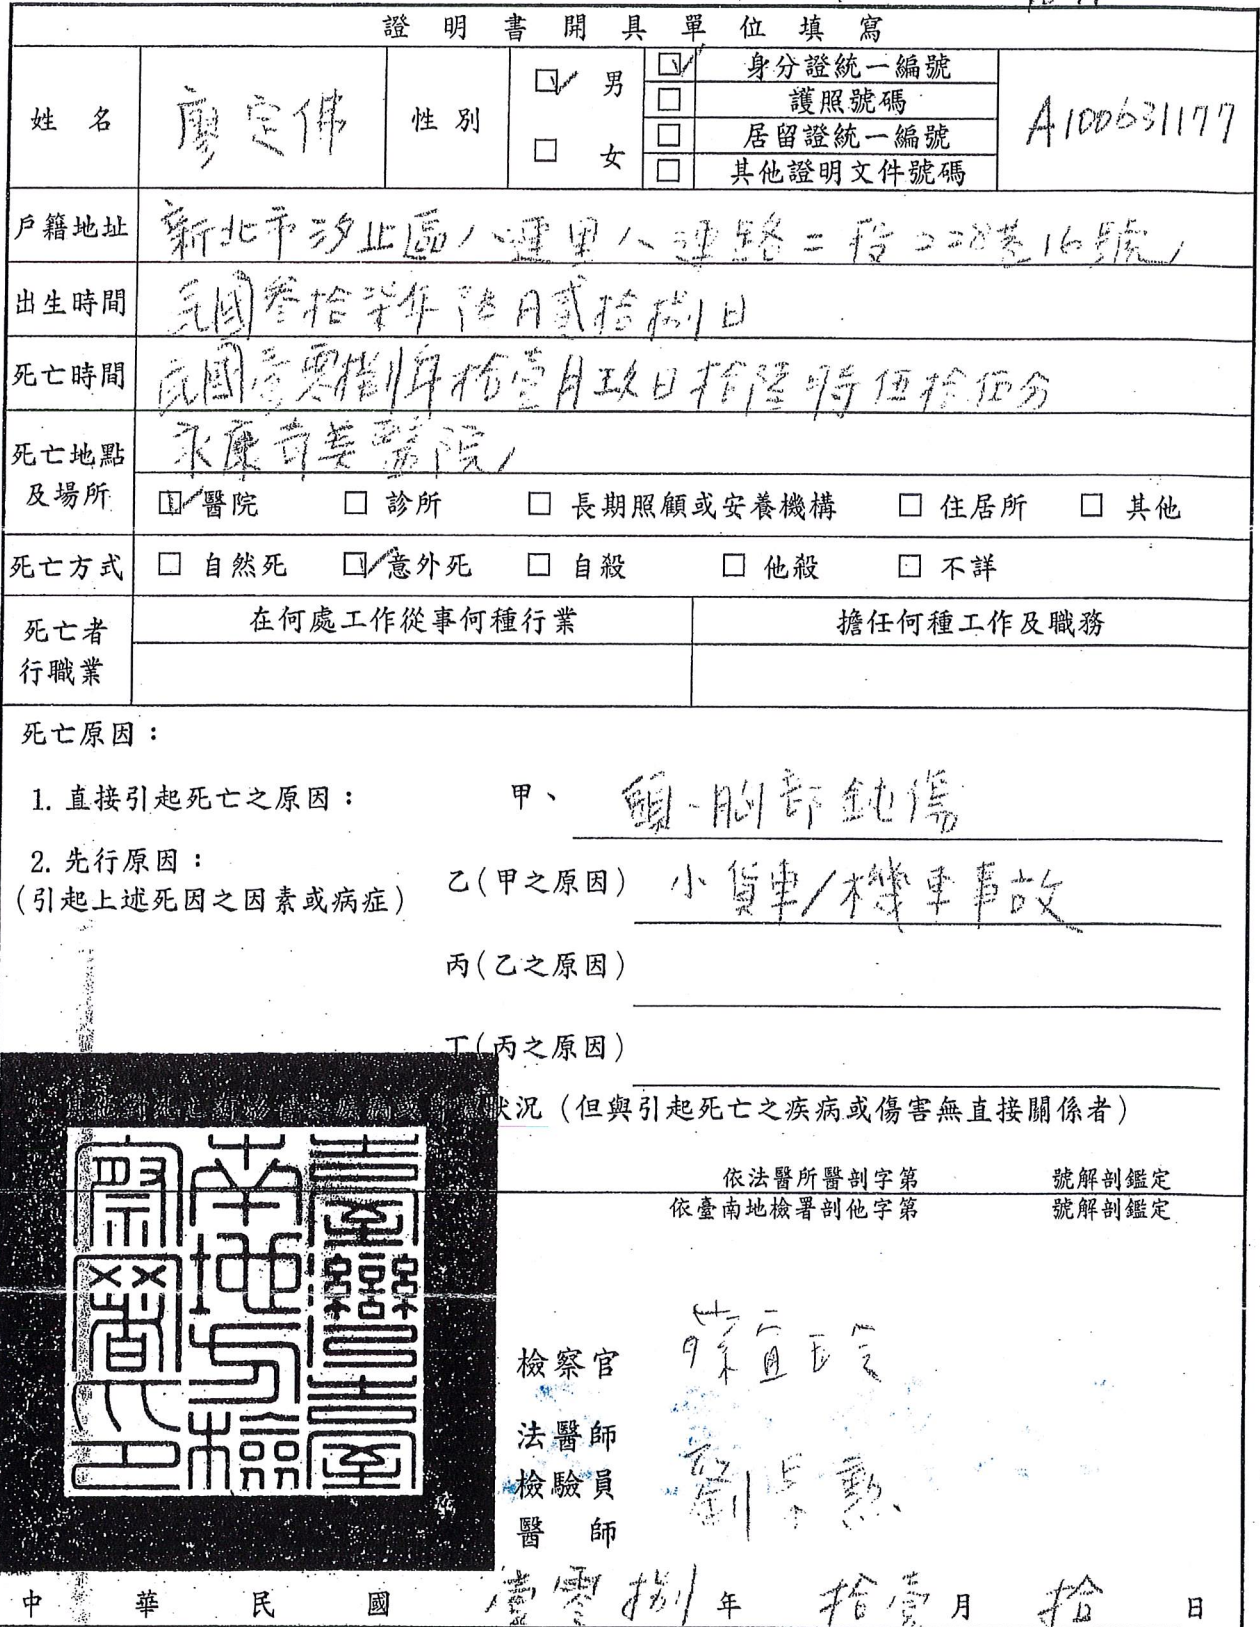 證明書開具單位填寫
姓名 廖定佛 性別 ☑ 男 □ 女
☑ 身分證統一編號 A100631177
□ 護照號碼
□ 居留證統一編號
□ 其他證明文件號碼
戶籍地址 新北市汐止區八連里八連路二段228巷16號
出生時間 民國參拾柒年陸月貳拾捌日
死亡時間 民國壹零捌年拾壹月玖日拾陸時伍拾伍分
死亡地點及場所 永康奇美醫院
☑ 醫院 □ 診所 □ 長期照顧或安養機構 □ 住居所 □ 其他
死亡方式 □ 自然死 ☑ 意外死 □ 自殺 □ 他殺 □ 不詳
死亡者行職業 在何處工作從事何種行業 擔任何種工作及職務
死亡原因：
1. 直接引起死亡之原因： 甲、 頭、胸部鈍傷
2. 先行原因：
(引起上述死因之因素或病症) 乙(甲之原因) 小貨車/機車事故
丙(乙之原因)
丁(丙之原因)
狀況（但與引起死亡之疾病或傷害無直接關係者）
依法醫所醫剖字第 號解剖鑑定
依臺南地檢署剖他字第 號解剖鑑定
臺灣臺南地方檢察署印
檢察官
法醫師
檢驗員
醫師
中華民國 壹零捌 年 拾壹 月 拾 日